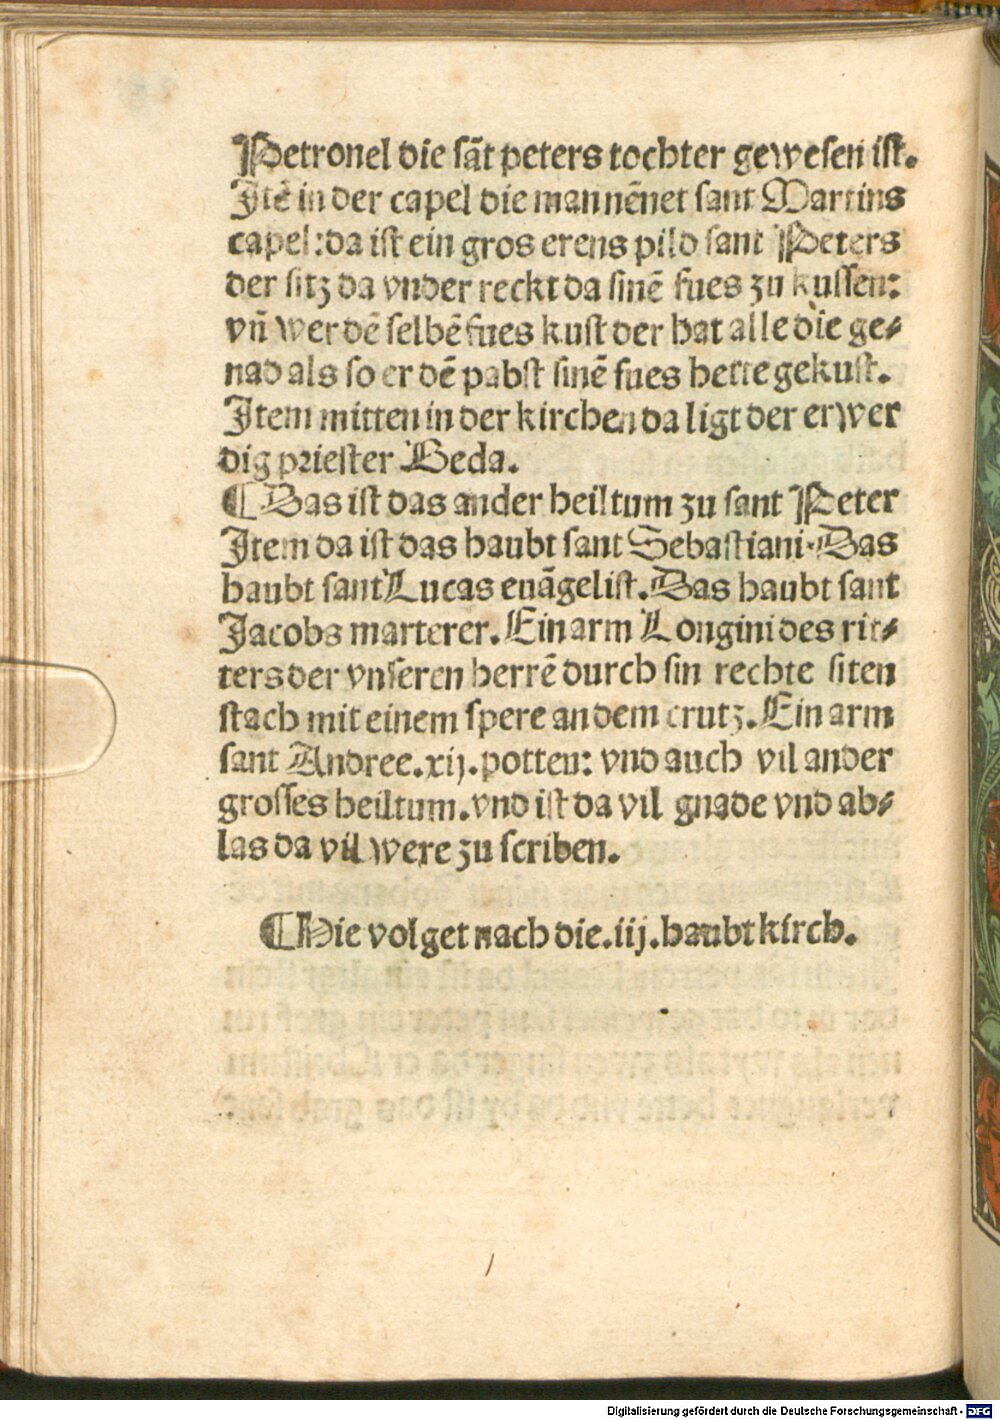 Petronel die sāt peters tochter gewesen ist.
Itē in der capel die man nēnet sant Martins
capel: da ist ein gros erens pild sant Peters
der sitz da vnder reckt da sinē fues zu kussen:
vn̄ wer dē selbē fues kust der hat alle die ge⸗
nad als so er dē pabst sinē fues hette gekust.
Item mitten in der kirchen da ligt der erwer
dig priester Beda.
¶ Das ist das ander heiltum zu sant Peter
Item da ist das haubt sant Sebastiani. Das
haubt sant Lucas euāgelist. Das haubt sant
Jacobs marterer. Ein arm Longini des rit⸗
ters der vnseren herrē durch sin rechte siten
stach mit einem spere an dem crutz. Ein arm
sant Andree. xij. potten: vnd auch vil ander
grosses heiltum. vnd ist da vil gnade vnd ab⸗
las da vil were zu scriben.
¶ Hie volget nach die .iij. haubt kirch.
Digitalisierung gefördert durch die Deutsche Forschungsgemeinschaft - DFG